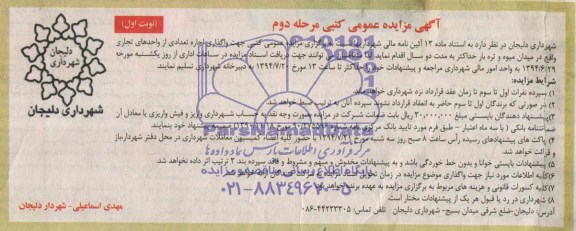 آگهی مزایده عمومی کتبی مرحله دوم
(نوبت اول)
دلیجان
شهرداری
شهرداری دلیجان
شهرداری دلیجان در نظر دارد به استناد ماده ۱۳ آئین نامه مالی شهرداریها نسبت به برگزاری مزایده عمومی کتبی جهت واگذاری اجاره تعدادی از واحدهای تجاری
واقع در میدان میوه و تره بار حداکثر به مدت دو سال اقدام نماید. لذا متقاضیان می توانند جهت دریافت اسناد مزایده در ساعات اداری از روز یکشنبه مورخه
۱۳۹۴/۶/۲۹ به واحد امور مالی شهرداری مراجعه و پیشنهادات خود را حداکثر تا ساعت ۱۳ مورخ ۱۳۹۴/۷/۲۰ به دبیرخانه شهرداری تسلیم نمایند.
شرایط مزایده:
۱) سپرده نفرات اول تا سوم تا زمان عقد قرارداد نزد شهرداری خواهد ماند.
۲) در صورتی که برندگان اول تا سوم حاضر به انعقاد قرارداد نشوند سپرده آنان به ترتیب ضبط خواهد شد.
۳) پیشنهاد دهندگان بایستی مبلغ ۳۰,۰۰۰,۰۰۰ ریال بابت ضمانت شرکت در مزایده بصورت وجه نقد به حساب شهرداری واریز و فیش واریزی یا معادل آن
ضمانتنامه بانکی (با سه ماه اعتبار - طبق فرم مورد تایید بانک مرکزی
۴) پاکت های پیشنهادهای رسیده رأس ساعت ۸ صبح روز سه شنبه مورخ ۱۳۹۴/۷/۲۱ با حضور کلیه اعضاء کمیسیون عالی معاملات شهرداری در محل دفتر شهردار، باز
و قرائت خواهد شد.
۵) پیشنهادات بایستی خوانا و بدون خط خوردگی باشد و به پیشنهادات مخدوش و مبهم و مشروط و فاقد سپرده بند ۳ ترتیب اثر داده نخواهد شد.
۶) کلیه اطلاعات مورد نیاز جهت واگذاری موضوع مزایده در زمان تحویل اسناد مزایده به شرکت کنندگان ارائه خواهد شد.
۷) کلیه کسورات قانونی و هزینه های مربوط به برگزاری مزایده به عهده برنده خواهد بود.
۸) شهرداری در رد یا قبول هر یک از پیشنهادات مختار است.
آدرس: دلیجان-ضلع شرقی میدان بسیج- شهرداری دلیجان تلفن تماس: ۰۸۶-۴۴۲۲۳۳۰۵
مهدی اسماعیلی- شهردار دلیجان
ParsNamadData
پایگاه اطلاع رسانی مناقصه و مزایده
۰۲۱-۸۸۳۴۹۶۷۰-۵